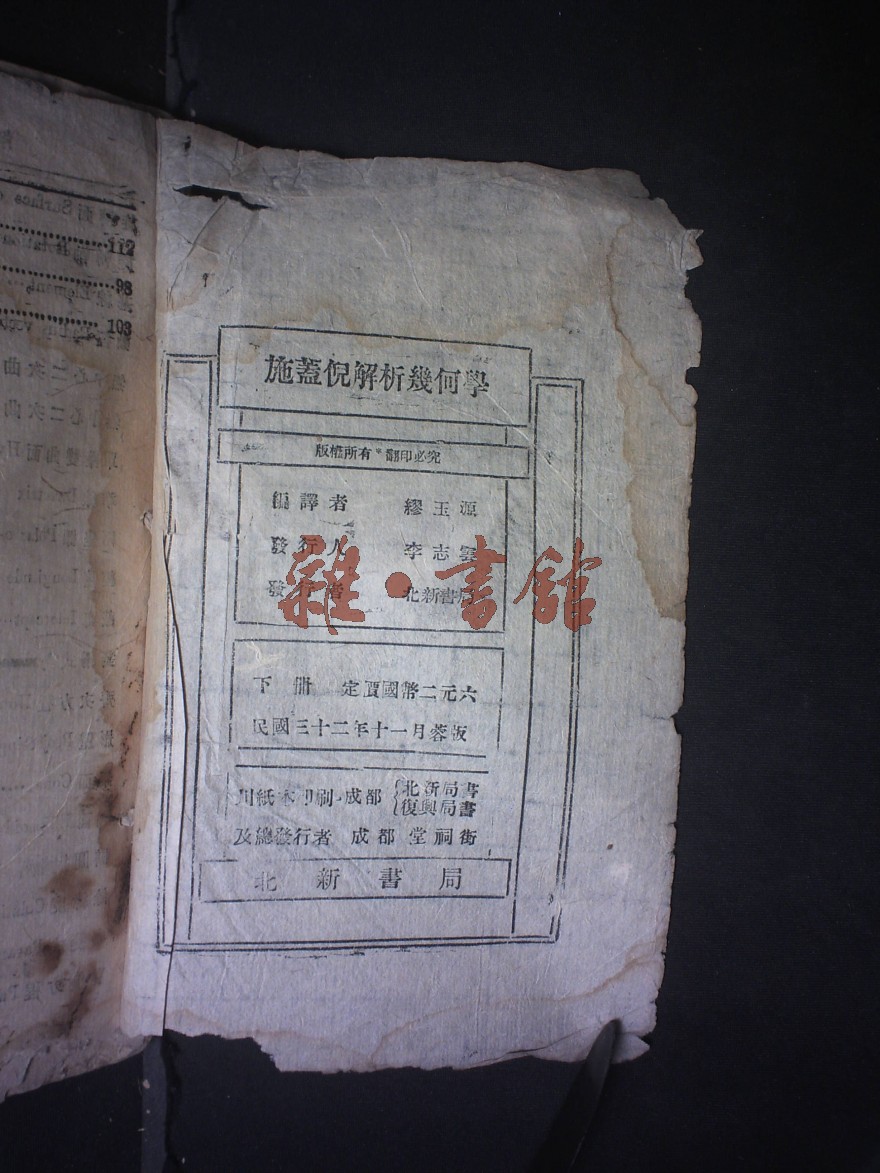 施蓋倪解析幾何學
版權所有*翻印必究
編譯者 繆玉源
發行人 李志雲
發行者 北新書局
雜·書館
下冊 定價國幣二元六
民國三十二年十一月蓉版
川紙本印刷 成都 北新局書
復興局書
及總發行者 成都堂祠街
北新書局
112
98
103